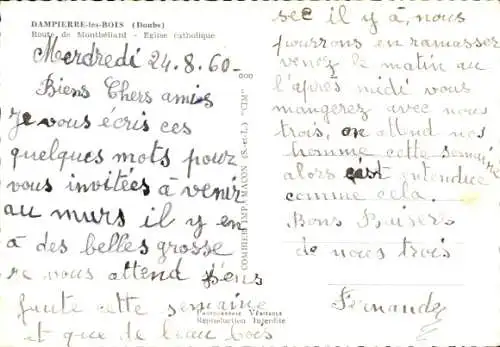 DAMPIERRE-les-BOIS (Doubs)
Route de Montbéliard - Eglise catholique
Mercredi 24.8.60-
Biens Chers amis
Je vous écris ces
quelques mots pour
vous invitées à venir
au murs il y en
à des belles grosse
je vous attend Sens
faute cette semaine
et que de beau bois
COMBIER IMP. MACON (S.-et-L.) "CIM"
PHOTOGRAPHIE VÉRITABLE
Reproduction Interdite
sec il y à, nous
pourrons en ramasser
venez le matin au
l'après midi vous
mangerez avec nous
trois, on attend nos
homme cette semaine
alors c'est entendue
comme cela.
Bons Baisers
de nous trois
Fernande